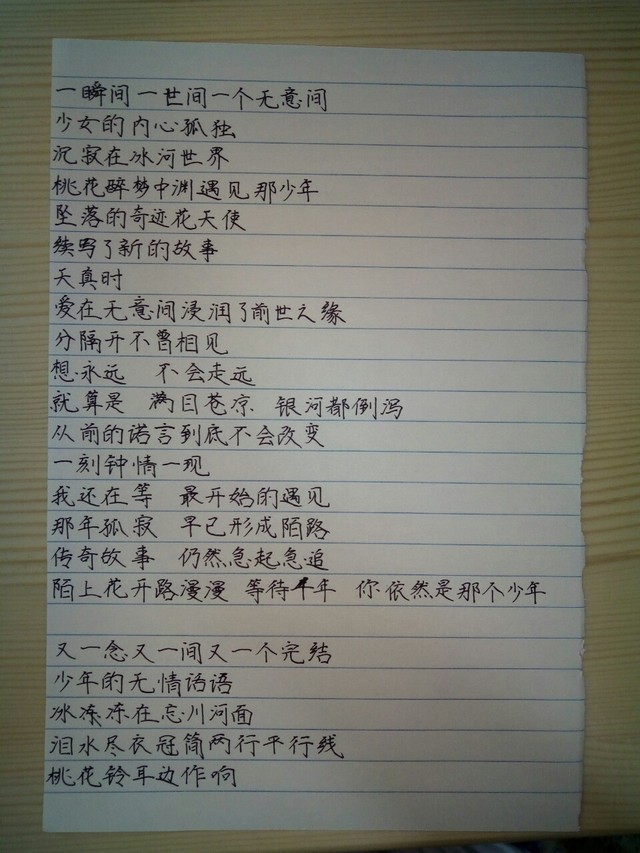 一瞬间一世间一个无意间
少女的内心孤独
沉寂在冰河世界
桃花醉梦中渊遇见那少年
坠落的奇迹花天使
续写了新的故事
天真时
爱在无意间浸润了前世之缘
分隔开不曾相见
想永远 不会走远
就算是 满目苍凉 银河都倒泻
从前的诺言到底不会改变
一刻钟情一现
我还在等 最开始的遇见
那年孤寂 早已形成陌路
传奇故事 仍然急起急追
陌上花开路漫漫 等待年 你依然是那个少年
又一念又一间又一个完结
少年的无情话语
冰冻冻在忘川河面
泪水尽衣冠简两行平行线
桃花铃耳边作响